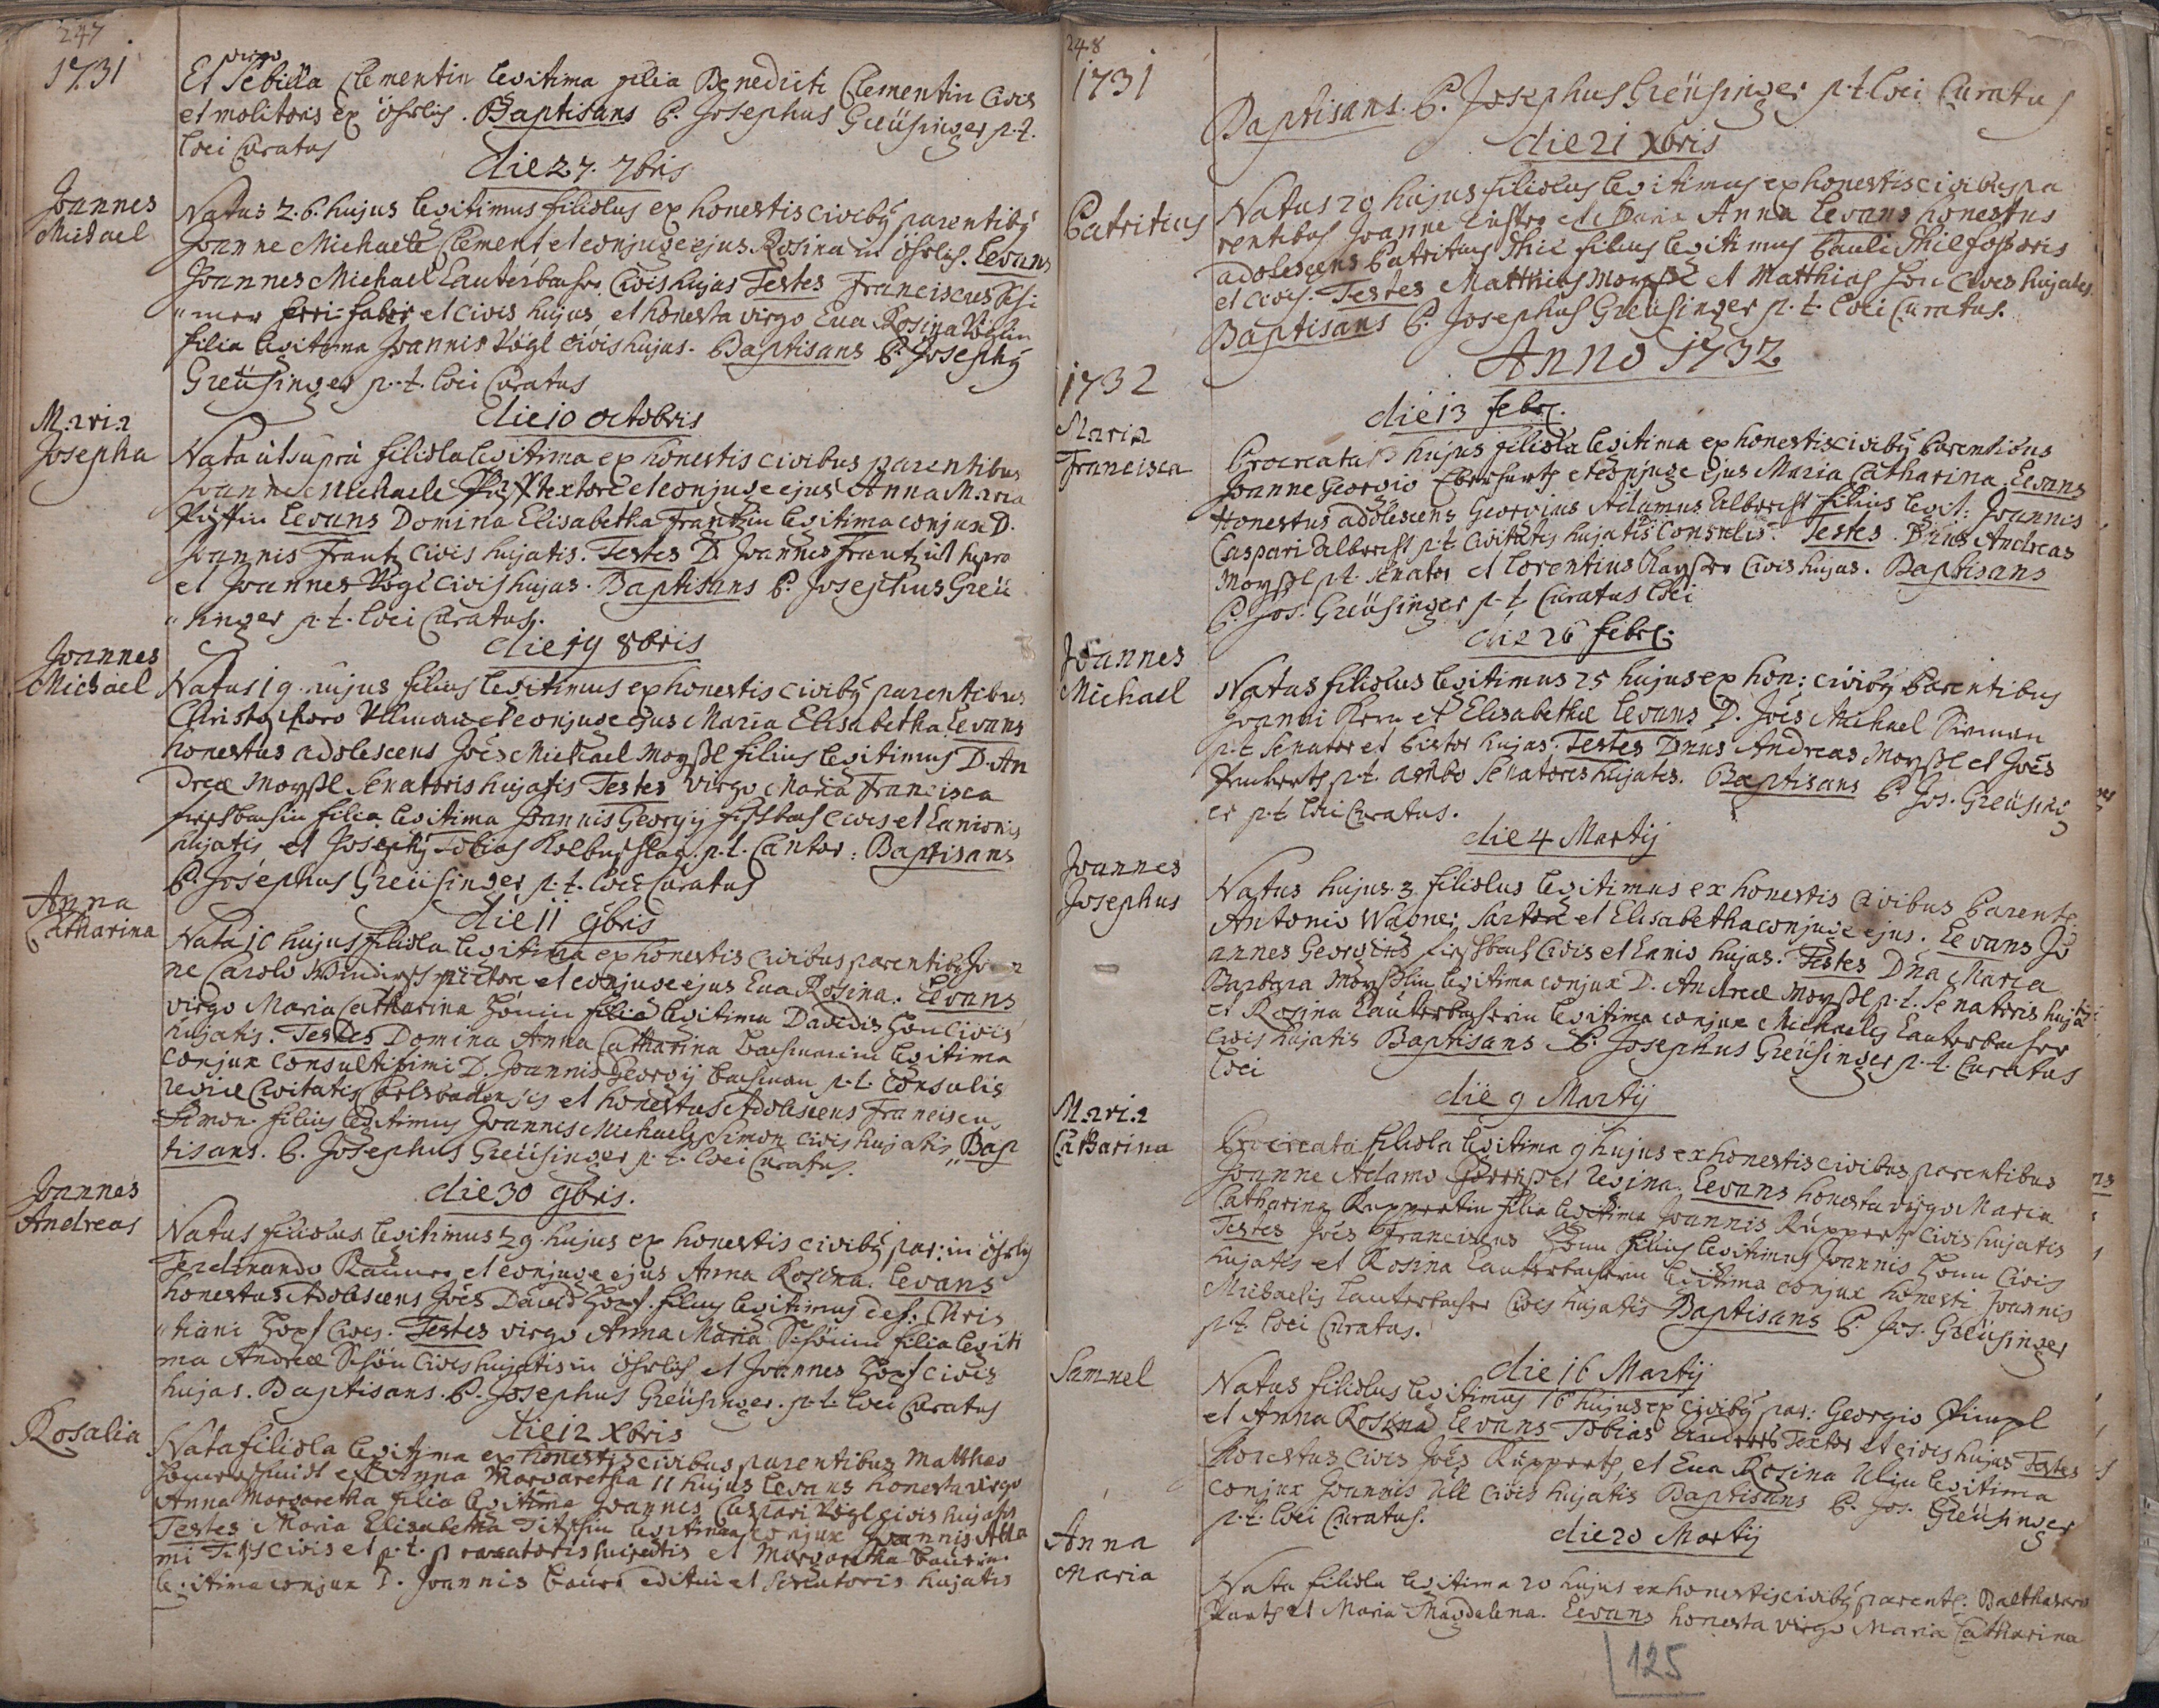 247
1731
virgo
Et Sebilla Clementin legitima filia Benedicti Clementin Civis
et molitoris ex öhrlich. Baptisans P. Josephus Greüsinger p.t.
loci Curatus
die 27. 7bris
Joannes
Michael
Natus 26. hujus legitimus filiolus ex honestis civibꝰ parentibꝰ
Joanne Michaele Clement et conjuge ejus Rosina in öhrlich. Levans
Joannes Michael Lauterbacher Civis hujas Testes Franciscus
"mer ferri faber et civis hujus et honesta virgo Eua Rosina Voglin
filia legitima Joannis Vogl civis hujus. Baptisans P. Josephꝰ
Greüsinger p.t. loci Curatus
die 10 octobris
Maria
Josepha
Nata ut supra filiola legitima ex honestis civibus parentibus
Joanne Michaele textore et conjuge ejus Anna Maria
Levans Domina Elisabetha Frantzin legitima conjux D.
Joannis Frantz civis hujatis. Testes D. Joannes Frantz ut supra
et Joannes Vogl civis hujas. Baptisans P. Josephus Greü
"singer p.t. loci Curatus.
die 19 8bris
Joannes
Michael
Natus 19 hujus filius legitimus ex honestis civibꝰ parentibus
Christophoro Ullman et conjuge ejus Maria Elisabetha Levans
honestus adolescens Joës Michael Moyßl filius legitimus D. An
dreæ Moyßl Senatoris hujatis Testes virgo Maria Francisca
filia legitima Joannis Georgij civis et Lanionis
hujatis et Josephꝰ Tobias p.t. Cantor: Baptisans
P. Josephus Greüsinger p.t. loci Curatus
die 11 9bris
Anna
Catharina
Nata 10 hujus filiola legitima ex honestis civibus parentibꝰ Joan
ne Carolo Windisch pictore et conjuge ejus Eua Rosina. Levans
virgo Maria Catharina Hönin filia legitima Davidis Hön Civis
hujatis. Testes Domina Anna Catharina Bachmanin legitima
conjux Consultissimi D. Joannis Georgij Bachman p.t. Consulis
regiæ Civitatis Carlsbadensis et honestus Adolescens Franciscus
Simon filius legitimus Joannis Michaelis Simon civis hujatis "Bap
tisans. P. Josephus Greüsinger p.t. loci Curatus.
die 30 9bris.
Joannes
Andreas
Natus filiolus legitimus 29 hujus ex honestis civibꝰ par: in öhrlich
Ferdinando et conjuge ejus Anna Rosina. Levans
honestus Adolescens Joës David Hopf filius legitimus def. Chris
"tiani Hopf Civis. Testes virgo Anna Maria Schönin filia legiti
ma Andreæ Schön Civis hujatis in öhrlich et Joannes Hopf civis
hujas. Baptisans. P. Josephus Greüsinger. p.t. loci Curatus
die 12 Xbris
Rosalia
Nata filiola legitima ex honestis civibus parentibus Mattheo
et Anna Margaretha 11 hujus Levans honesta virgo
Anna Margaretha filia legitima Joannis Caspari Vogl civis hujatis
Testes Maria Elisabetha legitima conjux Joannis Ada
mi civis et p.t. hujatis et Margaretha Baürin
legitima conjux D. Joannis Baür æditui et Senatoris hujatis
248
1731
Baptisans. P. Josephus Greüsinger p.t. loci Curatus
die 21 Xbris
Patritius
Natus 20 hujus filiolus legitimus ex honestis civibus pa
rentibus Joanne et Maria Anna Levans honestus
adolescens Patritius filius legitimus Pauli
et civis. Testes Matthias Moyßl et Matthias Hön Cives hujates
Baptisans P. Josephus Greüsinger p.t. loci Curatus.
Anno 1732
1732
die 13 febr.
Maria
Francisca
Procreata 13 hujus filiola legitima ex honestis civibꝰ Parentibus
Joanne Georgio Eberhart et conjuge ejus Maria Catharina. Levans
Honestus adolescens Georgius Adamus Albrecht filius legit: Joannis
Caspari Albrecht p.t. Civitatis hujatis Consulis. Testes. Dñus Andreas
Moyßl p.t. Senator et Lorentius Civis hujas. Baptisans
P. Jos: Greüsinger p.t. Curatus loci
die 26 febr:
Joannes
Michael
Natus filiolus legitimus 25 hujus ex hon: civibꝰ Parentibus
Joanni Kern et Elisabetha Levans D. Joës Michael Simon
p.t. Senator et Pistor hujas. Testes Dnus Andreas Moyßl et Joës
p.t. ambo Senatores hujates. Baptisans P. Jos. Greüsing
er p.t. loci Curatus.
die 4 Martij
Joannes
Josephus
Natus hujus 3 filiolus legitimus ex honestis Civibus Parent.
Antonio Wagner Sartore et Elisabetha conjuge ejus. Levans Jo
annes Georgius Civis et Lanio hujas. Testes Dña Maria
Barbara Moyßlin legitima conjux D. Andreæ Moyßl p.t. Senatoris hujatis
et Rosina Lauterbacherin legitima conjux Michaelis Lauterbacher
civis hujatis Baptisans P. Josephus Greüsinger p.t. Curatus
loci
die 9 Martij
Maria
Catharina
Procreata filiola legitima 9 hujus ex honestis civibus parentibus
Joanne Adamo et Regina. Levans honesta virgo Maria
Catharina Ruppertin filia legitima Joannis Ruppert Civis hujatis
Testes Joës Franciscus Hönn filius legitimus Joannis Hönn Civis
hujatis et Rosina Lauterbacherin legitima conjux honesti Joannis
Michaelis Lauterbacher Civis hujatis Baptisans P. Jos. Greüsinger
p.t. loci Curatus.
die 16 Martij
Samuel
Natus filiolus legitimus 16 hujus ex civibꝰ par: Georgio
et Anna Rosina Levans Tobias Textor et civis hujus Testes
honestus civis Joës Ruppert, et Eua Rosina Ullin legitima
conjux Joannis Ull civis hujatis Baptisans P. Jos. Greüsinger
p.t. loci Curatus.
die 20 Martij
Anna
Maria
Nata filiola legitima 20 hujus ex honestis civibꝰ parent. Balthasaro
et Maria Magdalena. Levans honesta virgo Maria Catharina
125